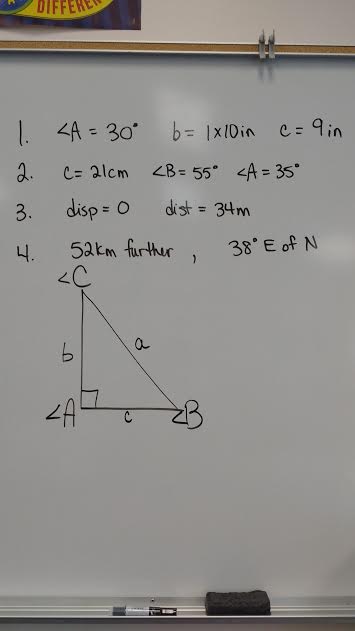 DIFFEREN
1. <A = 30° b = 1x10in c = 9in
2. c = 21cm <B = 55° <A = 35°
3. disp = 0 dist = 34m
4. 52km further, 38° E of N
<C
b a
<A c <B